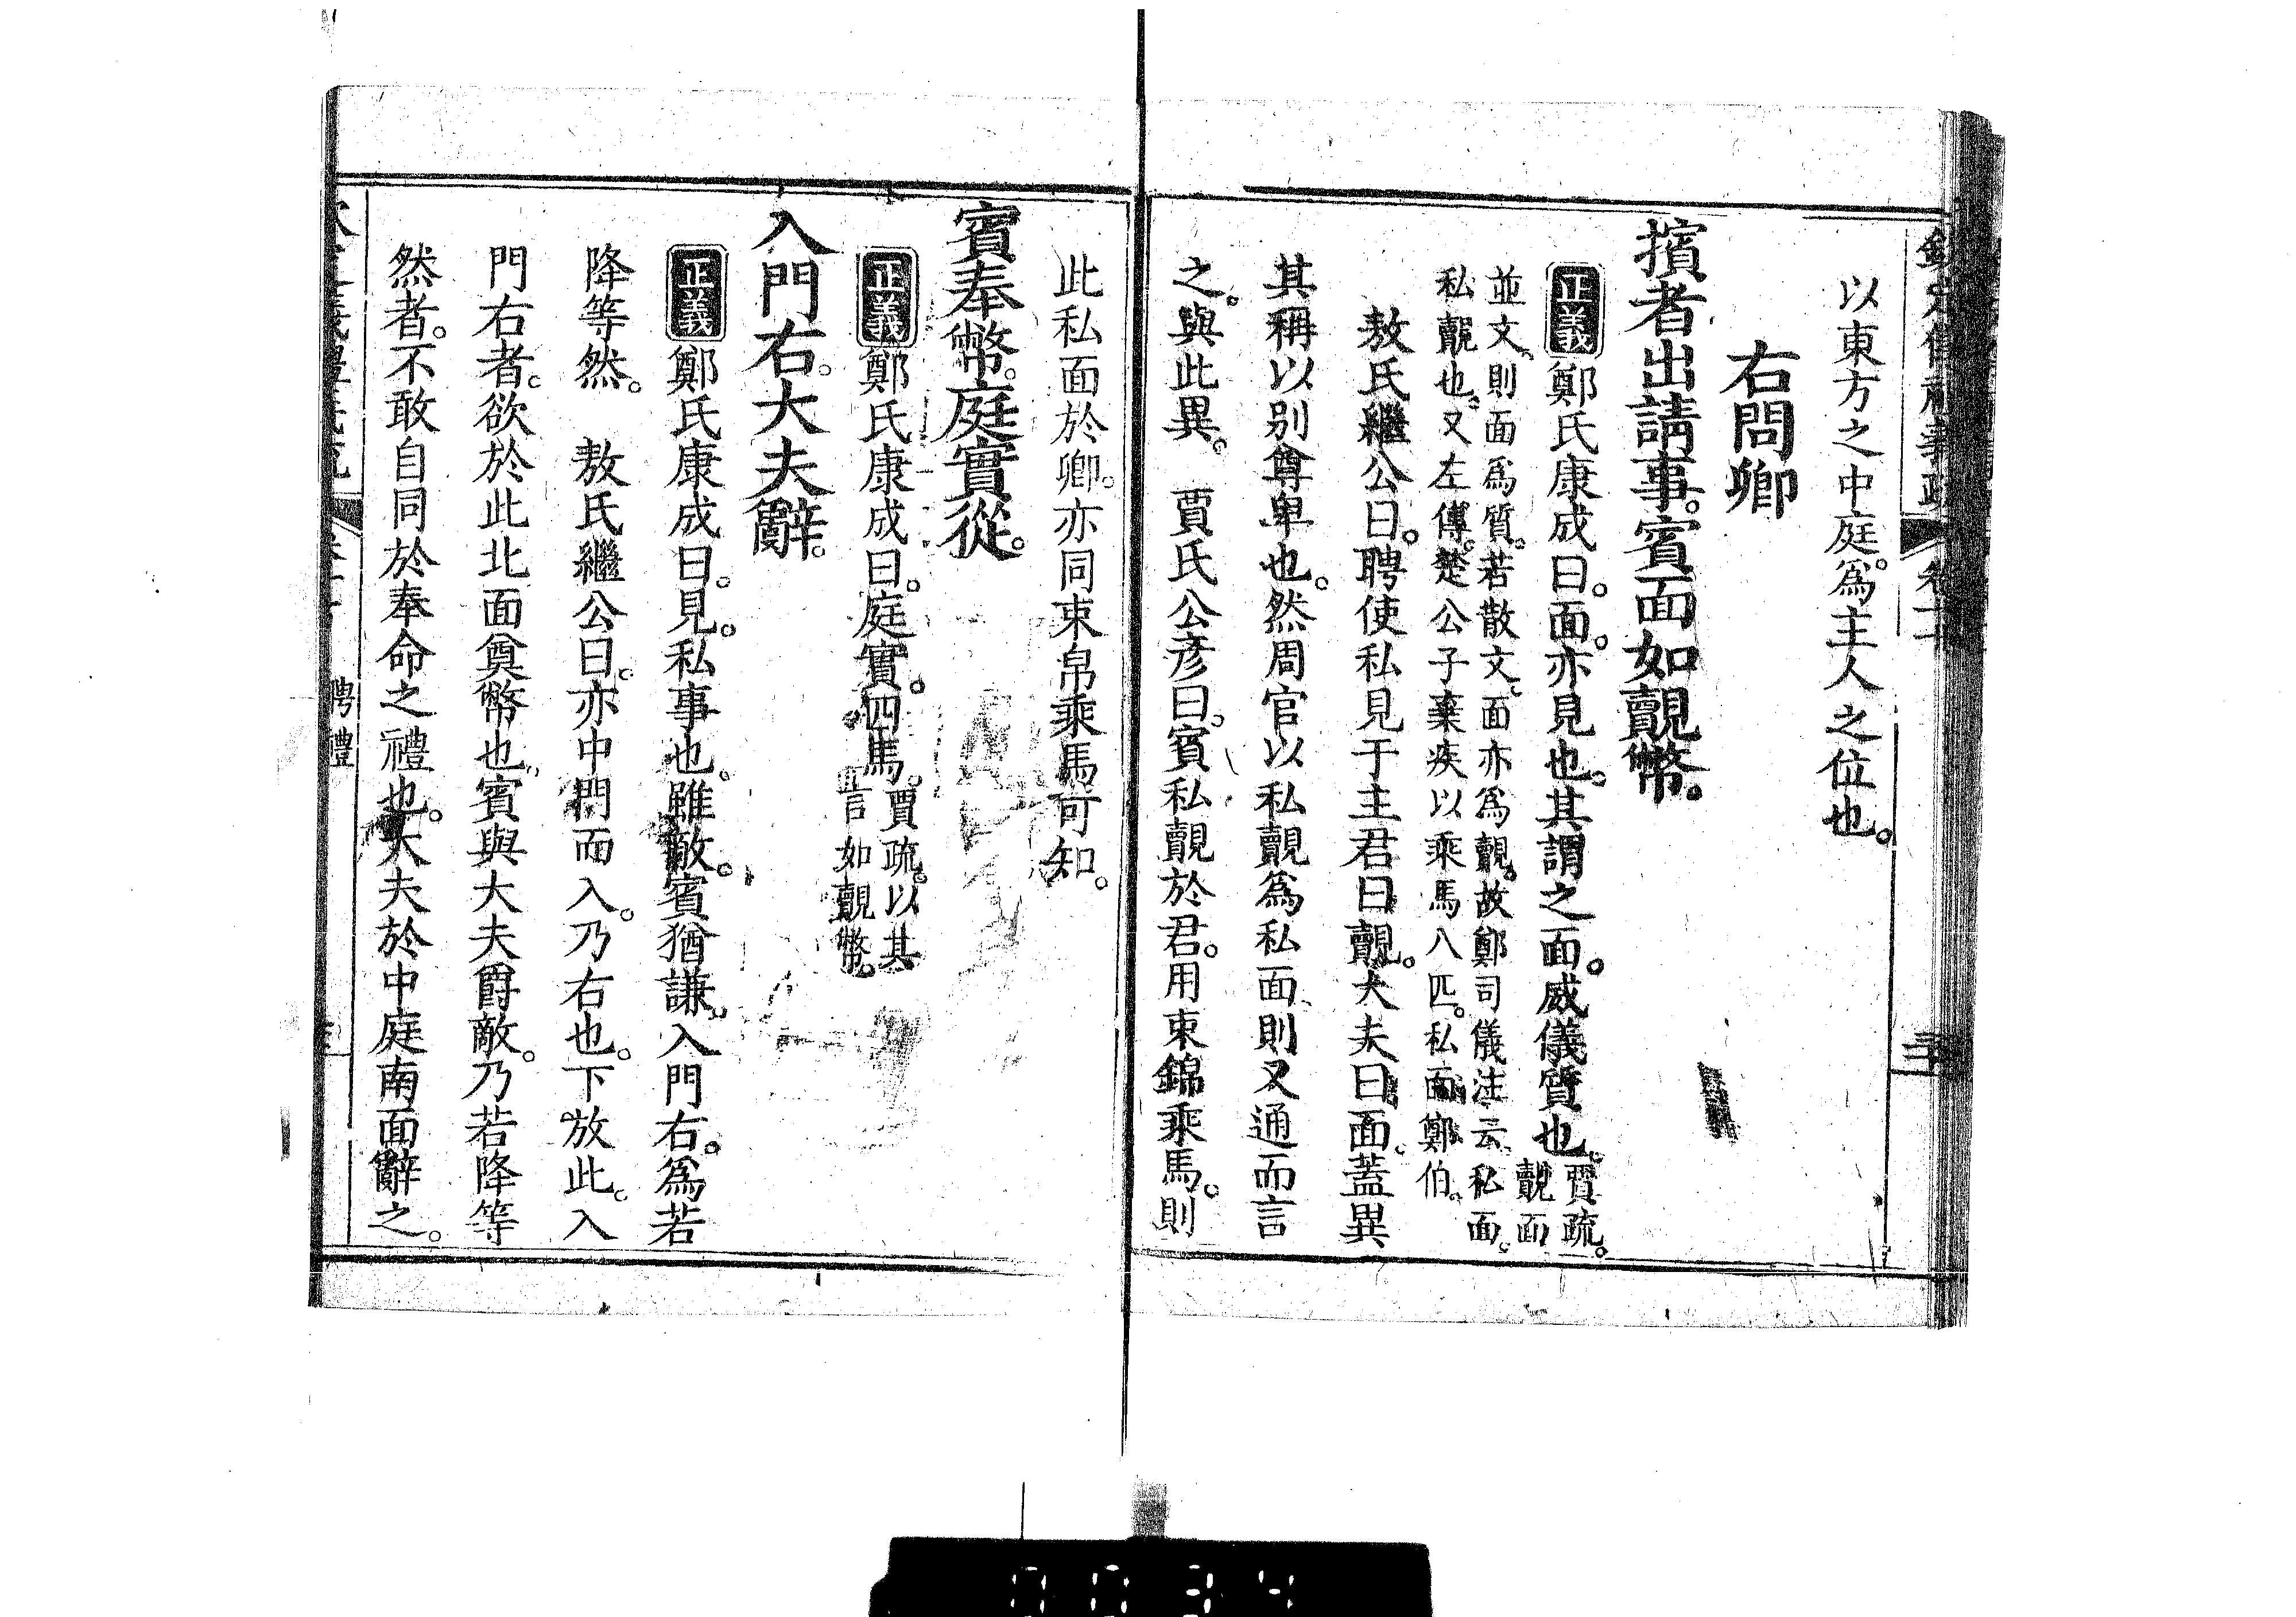 以東方之中庭。爲主人之位也。
右問卿
擯者出請事。賓面如覿幣。
正義 鄭氏康成曰。面。亦見也。其謂之面。威儀質也。賈疏。覿面
並文。則面爲質。若散文。面亦爲覿。故鄭司儀注云。私面。
私覿也。又左傳。楚公子棄疾以乘馬八匹。私面鄭伯。
敖氏繼公曰。聘使私見于主君曰覿。大夫曰面。蓋異
其稱以别尊卑也。然周官以私覿爲私面。則又通而言
之。與此異。 賈氏公彦曰。賓私覿於君。用束錦乘馬。則
此私面於卿。亦同束帛乘馬可知。
賓奉幣。庭實從。
正義 鄭氏康成曰。庭實。四馬。賈疏。以其言如覿幣。
入門右。大夫辭。
正義 鄭氏康成曰。見。私事也。雖敵。賓猶謙。入門右。爲若
降等然。 敖氏繼公曰。亦中門而入。乃右也。下放此。入
門右者。欲於此北面奠幣也。賓與大夫爵敵。乃若降等
然者。不敢自同於奉命之禮也。大夫於中庭南面辭之。
聘禮
0034